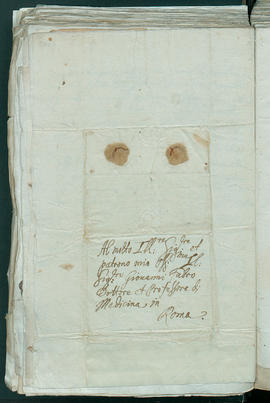 Al molto Ill.re Sig.re et
patrono mio oss.mo Il
Sig.r Giovanni Fabro
Dottore et Professore di
Medicina, in
Roma